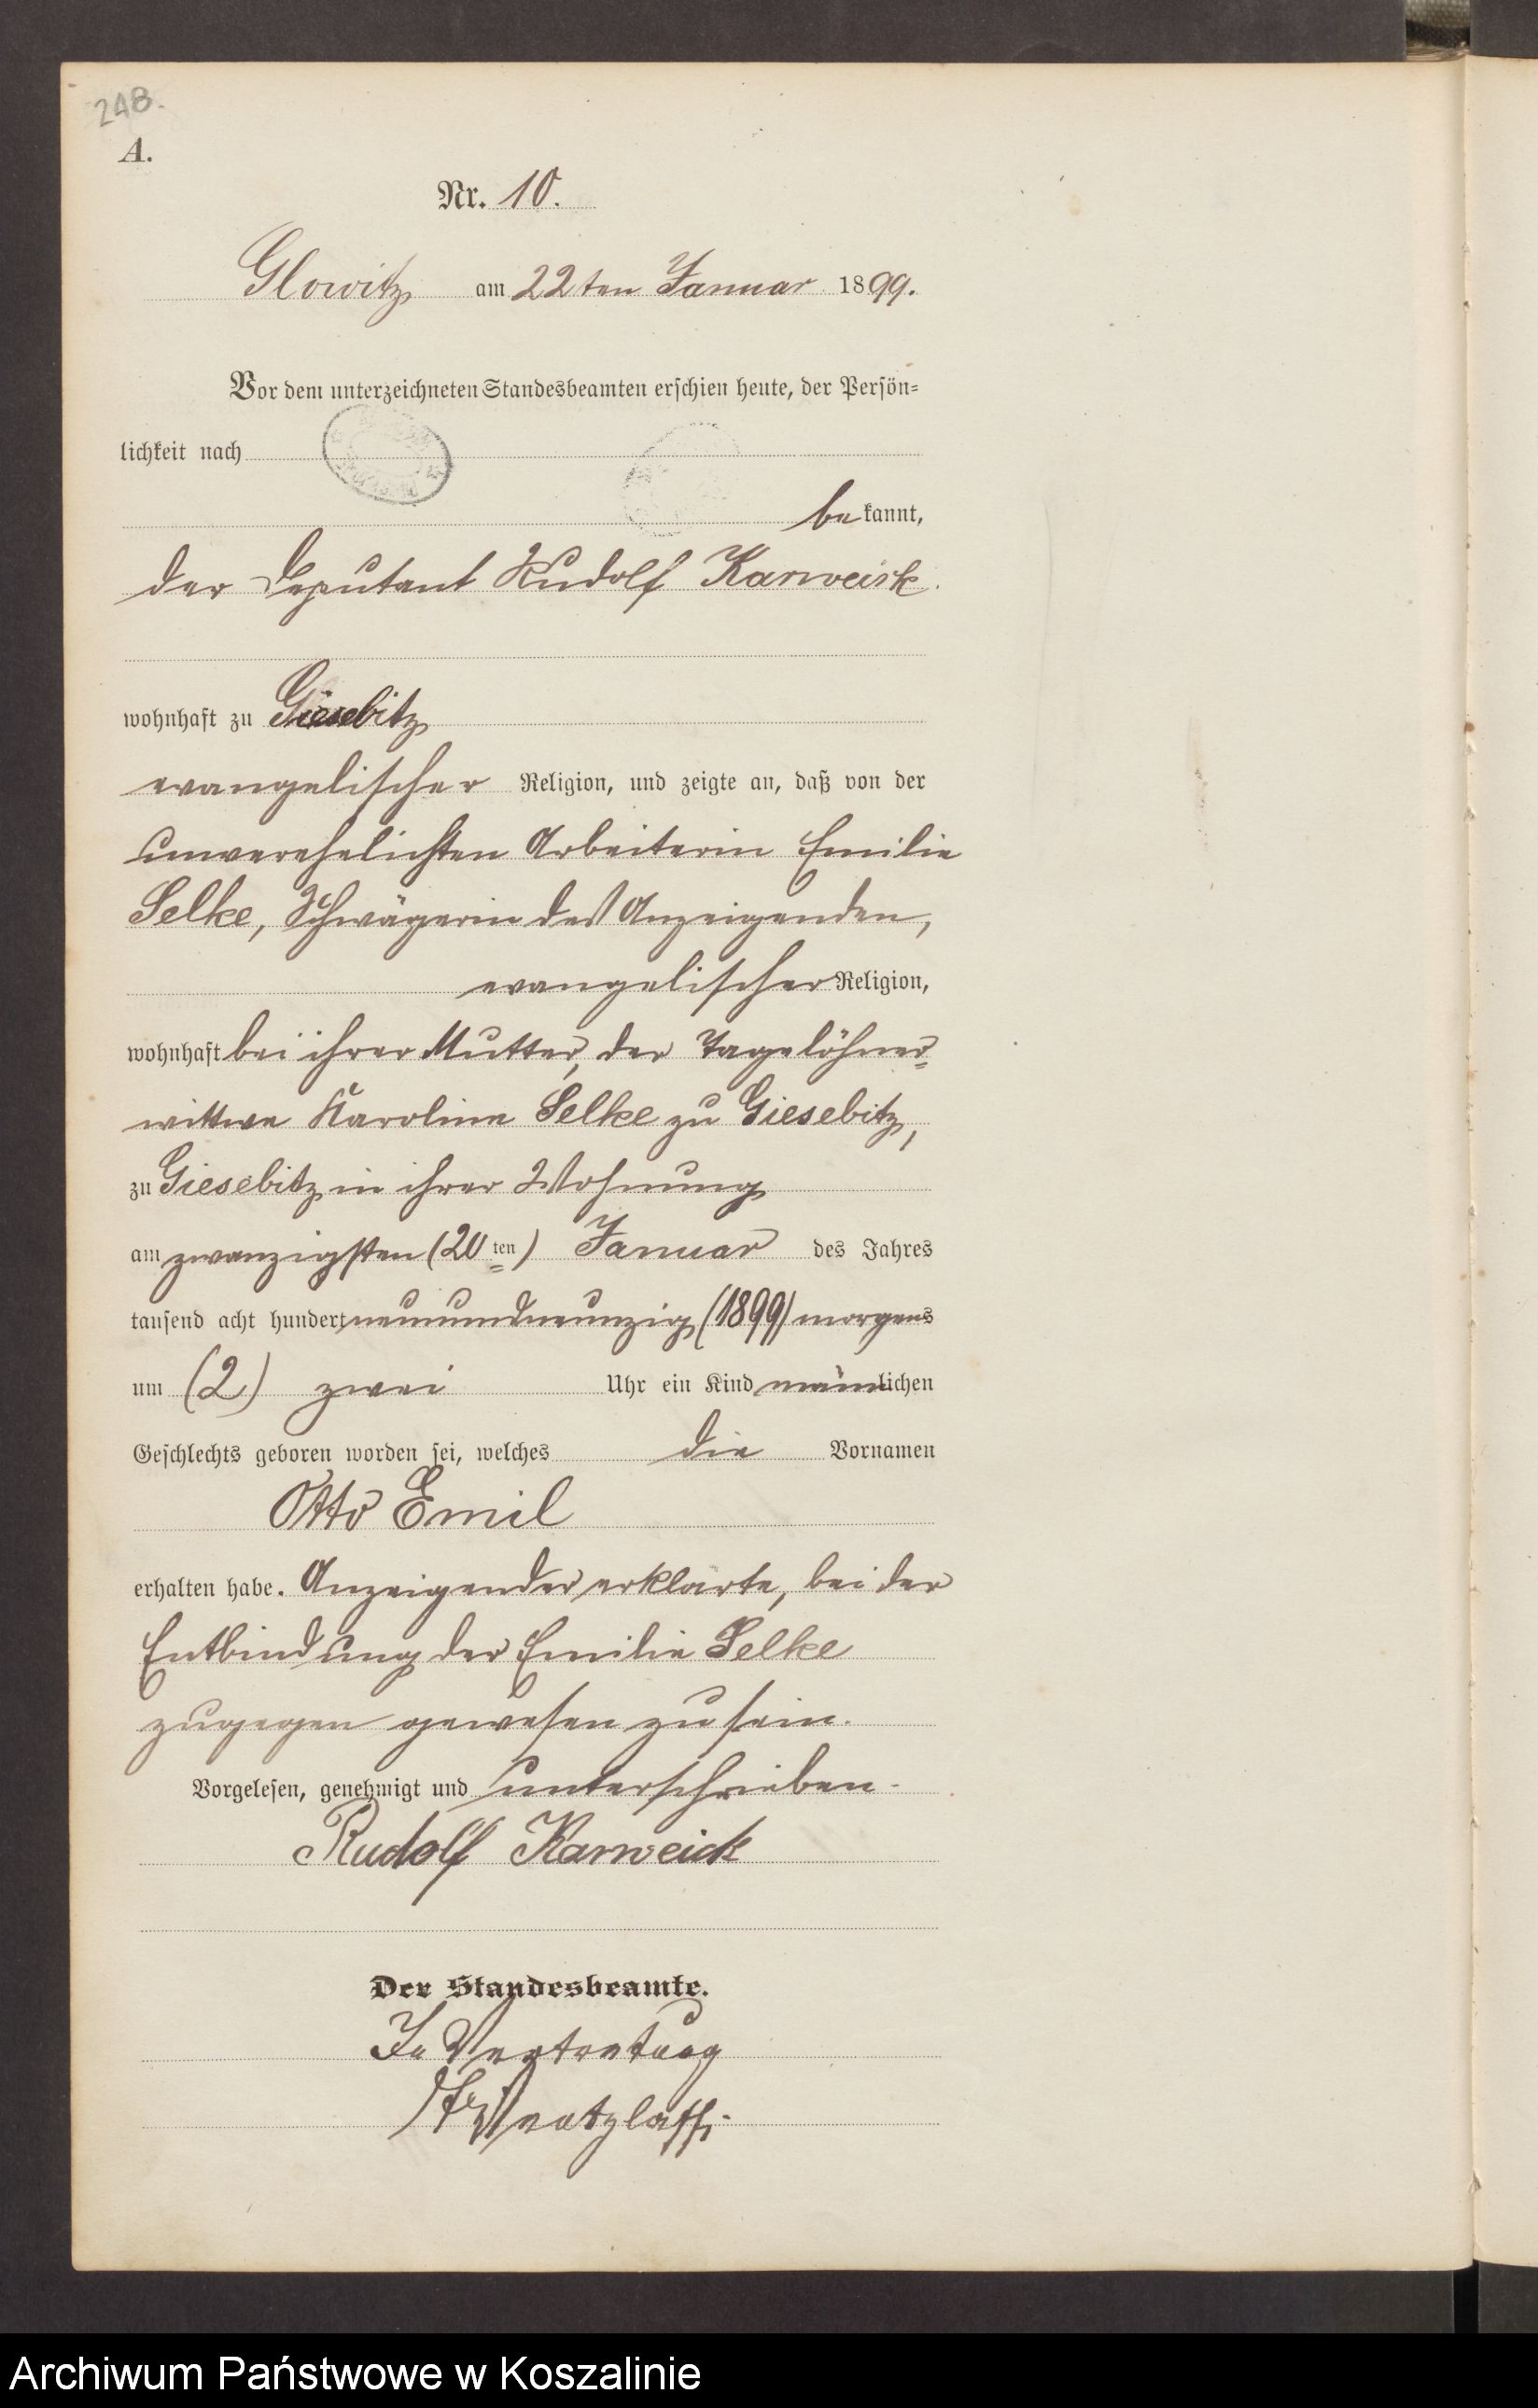 248.
A.
Nr. 10.
Glowitz am 22ten Januar 1899.
Vor dem unterzeichneten Standesbeamten erschien heute, der Persön-
lichkeit nach
bekannt,
der Deputant Rudolf Karweick
wohnhaft zu Giesebitz
evangelischer Religion, und zeigte an, daß von der
unverehelichten Arbeiterin Emilie
Selke, Schwägerin des Anzeigenden,
evangelischer Religion,
wohnhaft bei ihrer Mutter, der Tagelöhner-
wittwe Karoline Selke zu Giesebitz,
zu Giesebitz in ihrer Wohnung
am zwanzigsten (20ten) Januar des Jahres
tausend acht hundert neunundneunzig (1899) morgens
um (2) zwei Uhr ein Kind männlichen
Geschlechts geboren worden sei, welches die Vornamen
Otto Emil
erhalten habe. Anzeigender erklärte, bei der
Entbindung der Emilie Selke
zugegen gewesen zu sein.
Vorgelesen, genehmigt und unterschrieben.
Rudolf Karweick
Der Standesbeamte.
In Vertretung
Archiwum Państwowe w Koszalinie